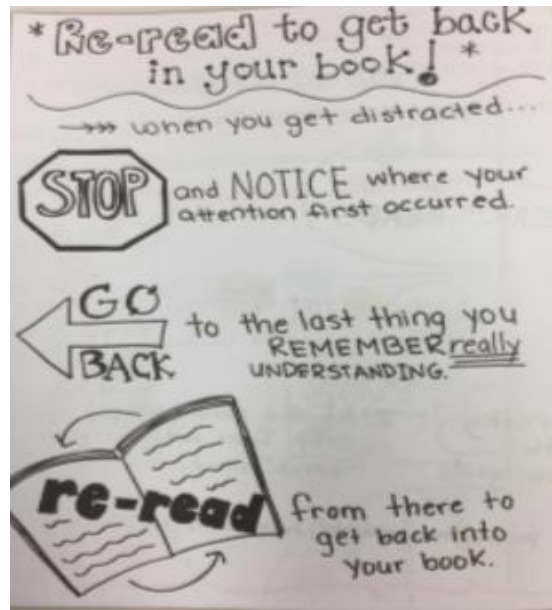 *Re-read to get back
in your book! *
when you get distracted...
STOP and NOTICE where your
attention first occurred.
GO
BACK
to the last thing you
REMEMBER really
UNDERSTANDING.
re-read
from there to
get back into
your book.